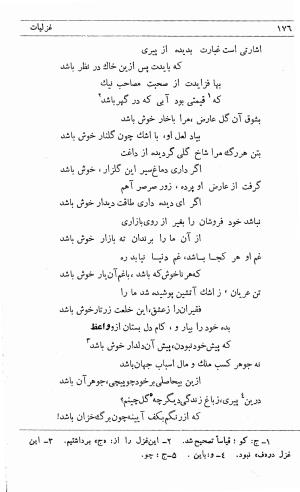 ١٧٦
غزلیات
اشارتی است غبارت بدیده از پیری
که بایدت پس ازین خاك در نظر باشد
بها فزایدت از صحبت مصاحب نیك
که۱ قیمتی بود آبی که در گهر باشد۲
بشوق آن گل عارض، مرا باخار خوش باشد
بیاد لعل او، با اشك چون گلنار خوش باشد
بتن هر رگ مرا شاخ گلی گردیده از داغت
اگر داری دماغ سیر این گلزار، خوش باشد
گرفت از عارض او پرده، زور صرصر آهم
اگر ای دیده داری طاقت دیدار خوش باشد
نباشد خود فروشان را بغیر از روی بازاری
از آن ما را برندان ته بازار خوش باشد
غم او هر کجا باشد، غم دنیا نباید ره
که هر ناخوش که باشد، باغم آن یار خوش باشد
تن عریان، ز اشك آتشین پوشیده شد ما را
فقیران را ز عشق، این خلعت زرتار خوش باشد
بده خود را بیار و، کام دل بستان ازو واعظ
که پیش آنچه نبودن، پیش آن دلدار خوش باشد۳
نه جوهر کسب ملك و مال اسباب جهان باشد
ازین بیحاصلی برخود چو پیچی، جوهر آن باشد
درین۴ پیری، ز باغ زندگی دیگر چه۵ گل چینم؟
که از رنگم بکف آیینه چون برگ خزان باشد!
۱- ج: کو؛ قیاساً تصحیح شد. ۲- این غزل را از: «ج» برداشتیم. ۳- این
غزل در «ف» نبود. ۴- و: باین. ۵- ج: چو.